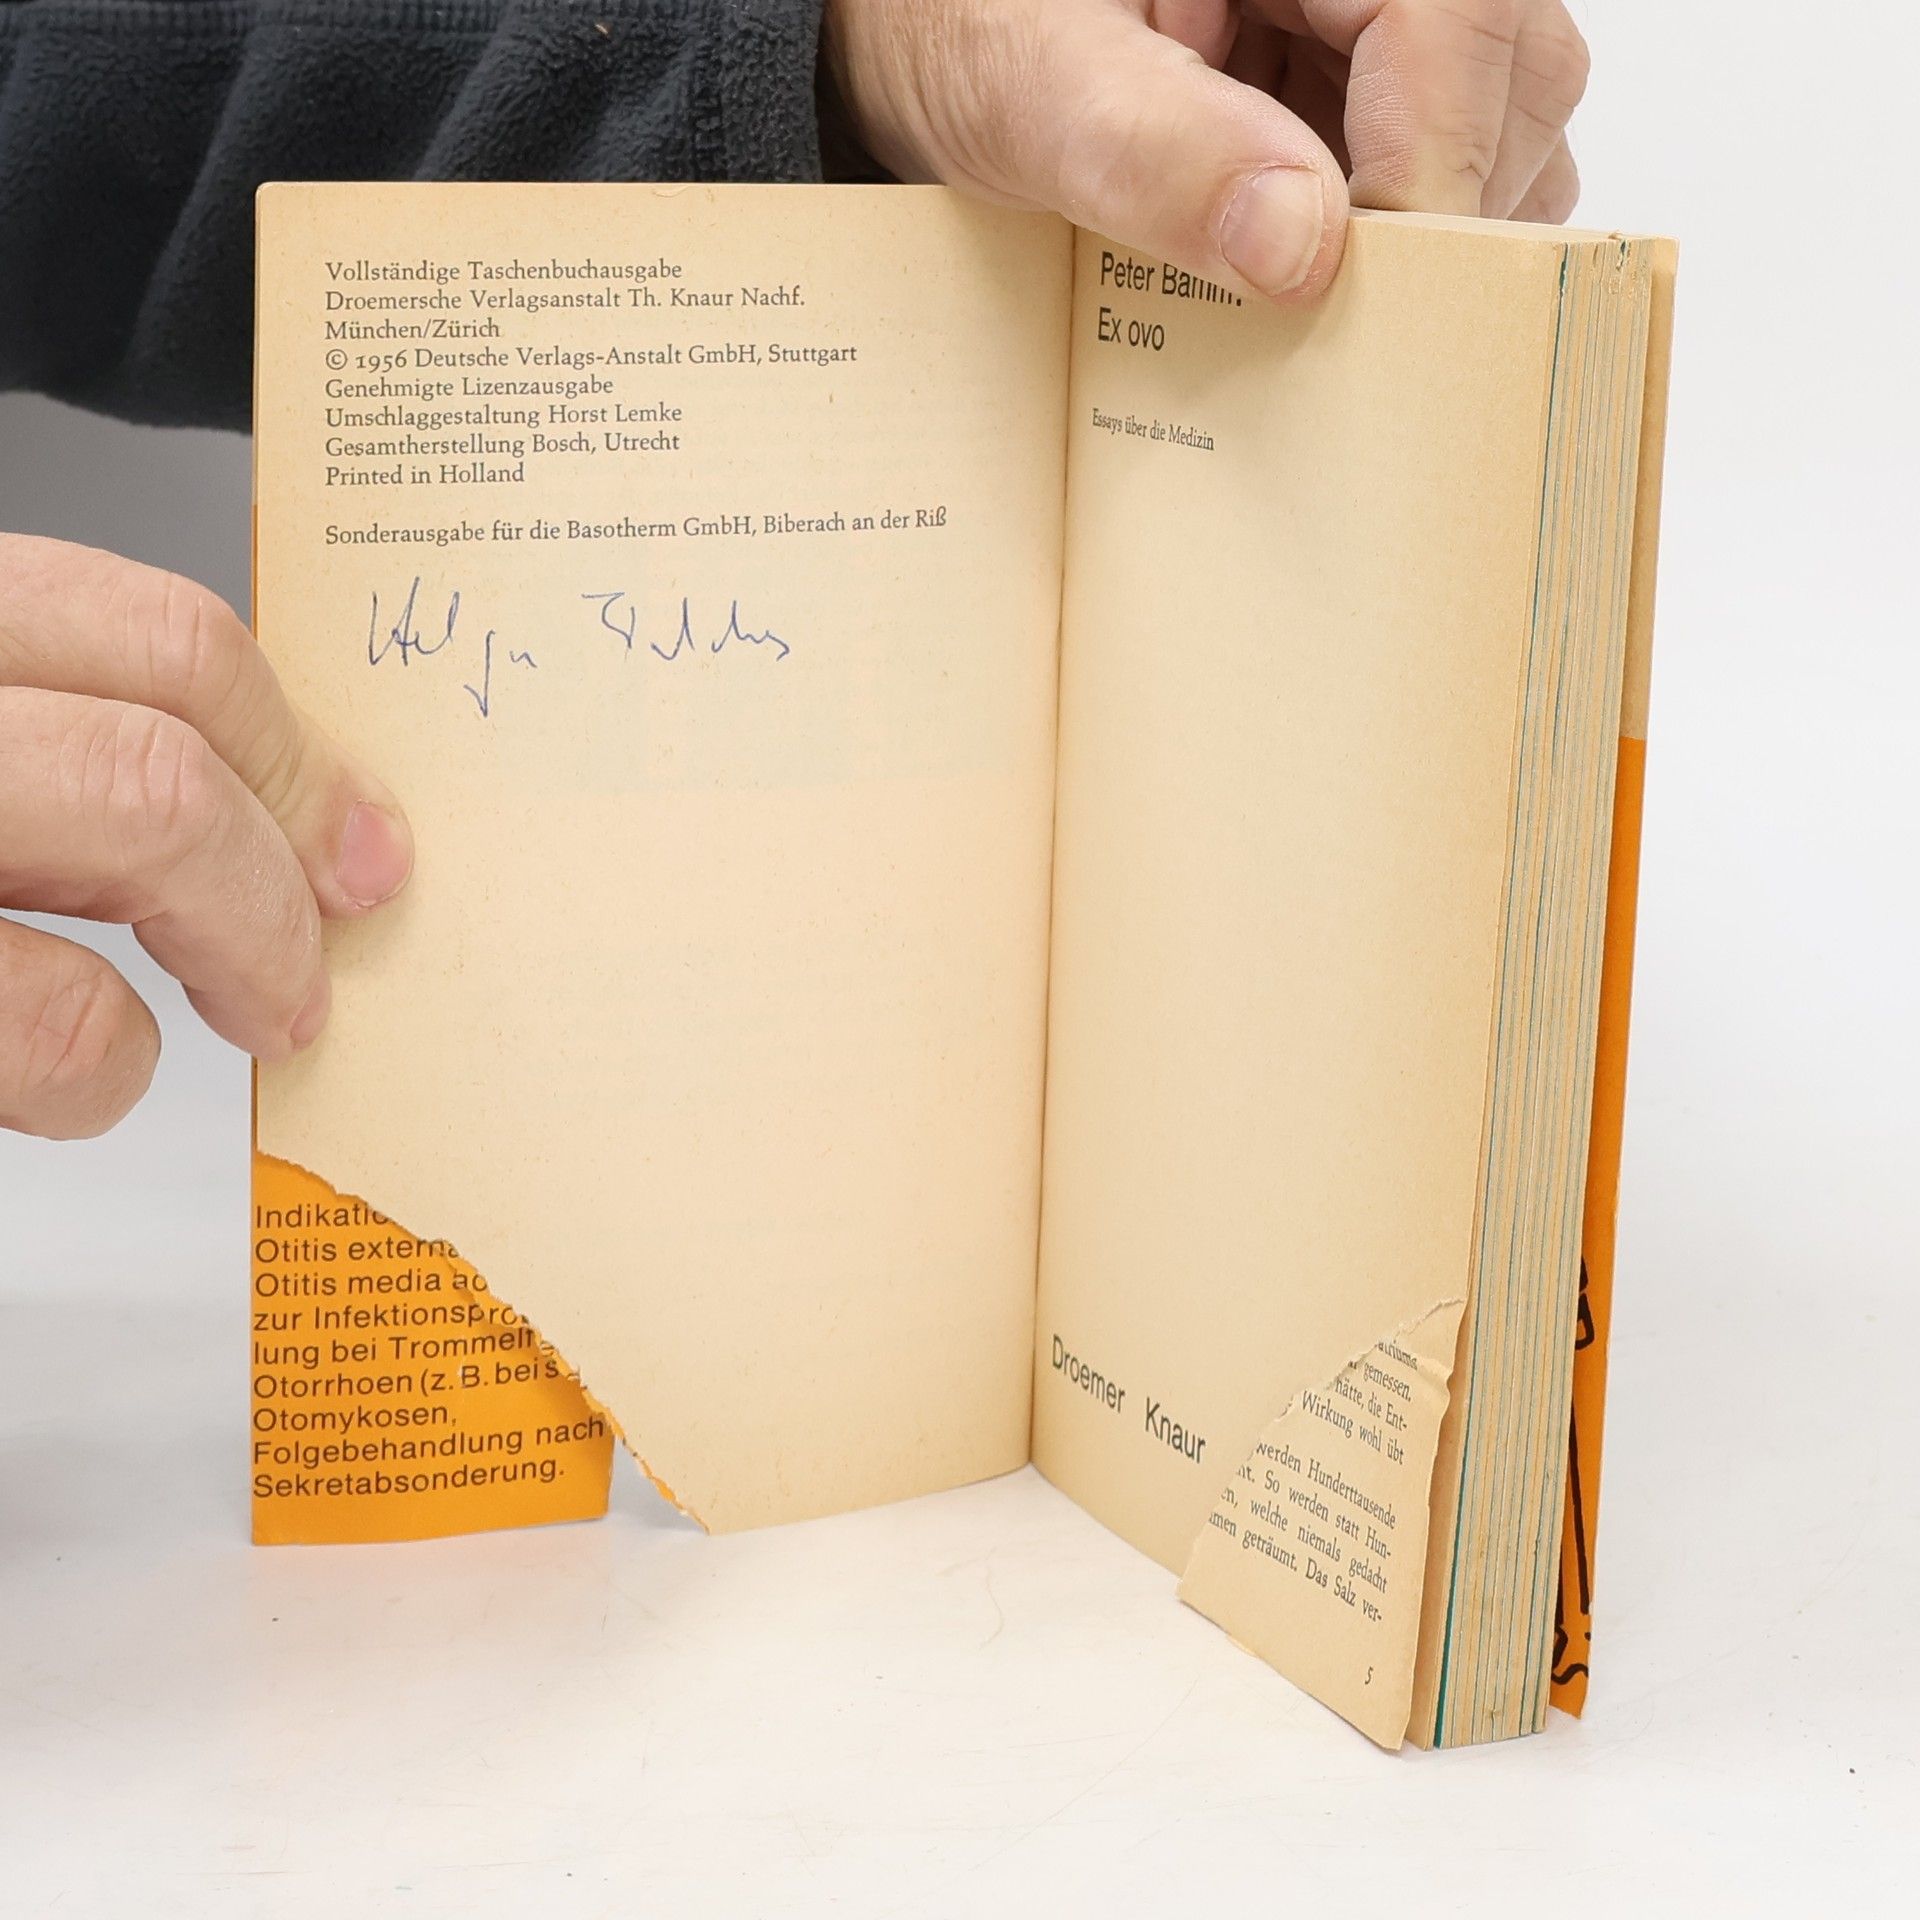 Vollständige Taschenbuchausgabe
Droemersche Verlagsanstalt Th. Knaur Nachf.
München/Zürich
© 1956 Deutsche Verlags-Anstalt GmbH, Stuttgart
Genehmigte Lizenzausgabe
Umschlaggestaltung Horst Lemke
Gesamtherstellung Bosch, Utrecht
Printed in Holland
Sonderausgabe für die Basotherm GmbH, Biberach an der Riß
Helga
Indikatio
Otitis externa
Otitis media ac
zur Infektionspro
lung bei Trommelfe
Otorrhoen (z. B. bei s
Otomykosen,
Folgebehandlung nach
Sekretabsonderung.
Peter Bamm:
Ex ovo
Essays über die Medizin
Droemer Knaur
gemessen.
hätte, die Ent-
Wirkung wohl übt
werden Hunderttausende
nt. So werden statt Hun-
en, welche niemals gedacht
men geträumt. Das Salz ver-
5